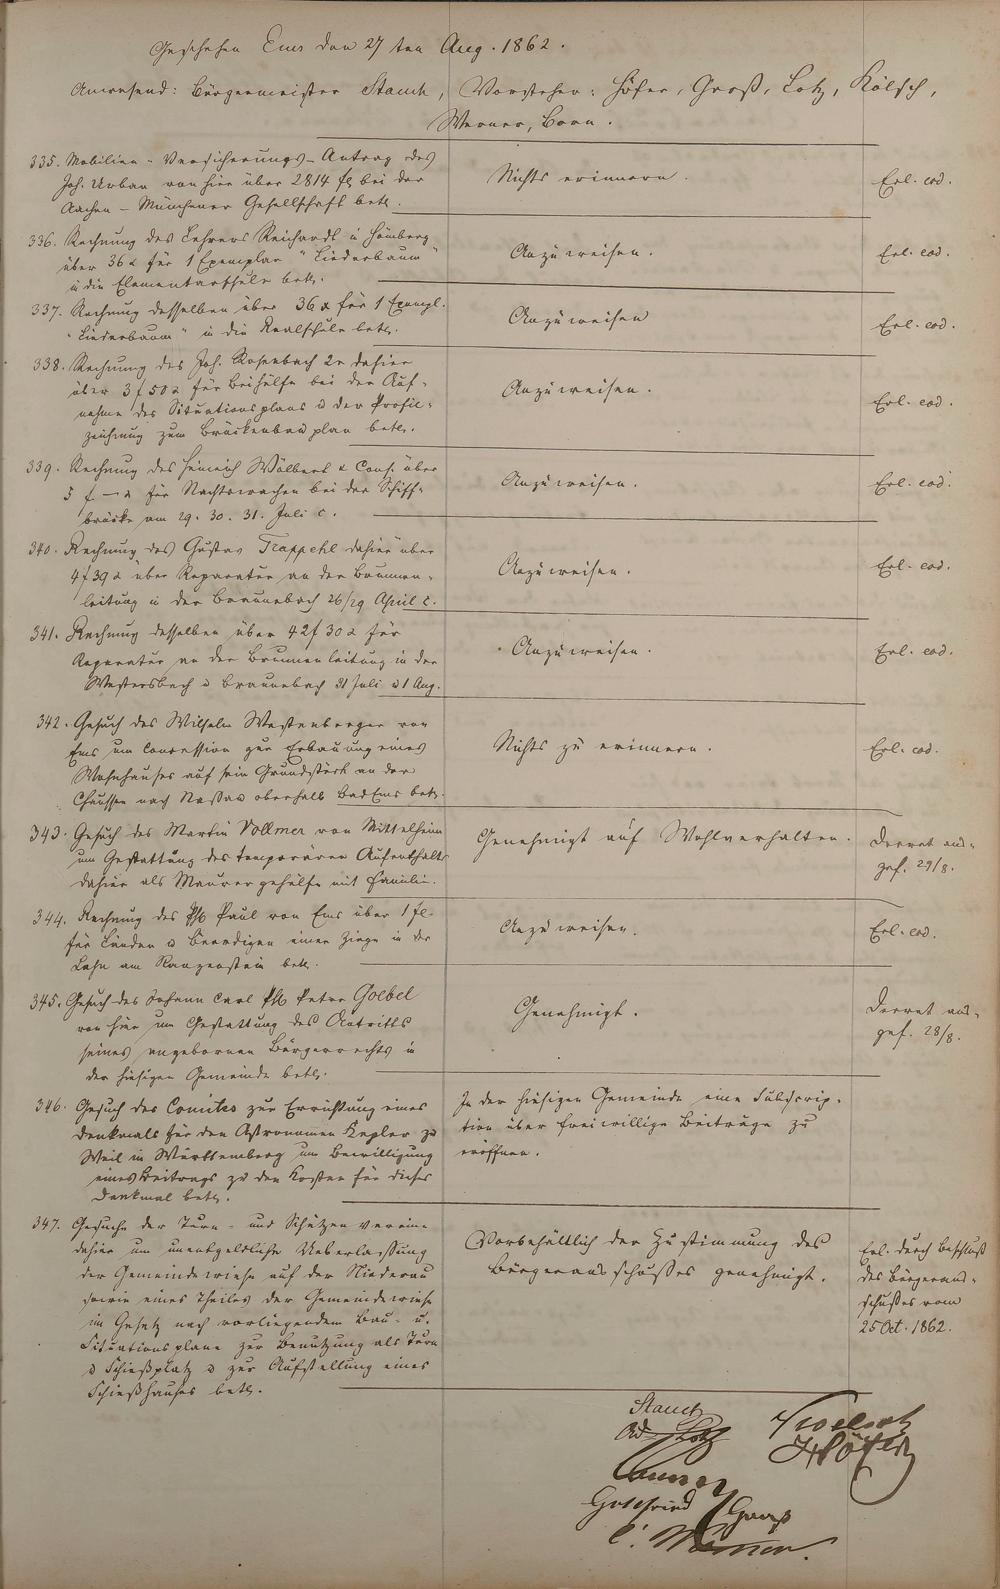 Geschehen Ems den 27ten Aug. 1862.
Anwesend: Bürgermeister Stauch, Vorsteher: Höfer, Groß, Lotz, Kölsch,
Werner, Born.
335. Mobilien-Versicherungs-Antrag des
Joh. Urban von hier über 2814 fl bei der
Aachen-Münchener Gesellschaft betr.
Nichts erinnern.
Erl. eod.
336. Rechnung des Lehrers Reichardt u Homberg
über 36 x für 1 Exemplar "Liederbaum"
in die Elementarschule betr.
Anzuweisen.
Erl. eod.
337. Rechnung desselben über 36 x für 1 Exempl.
"Liederbaum" in die Realschule betr.
Anzuweisen
Erl. eod.
338. Rechnung des Joh. Rosenbach 2r dahier
über 3 f 50 x für Beihülfe bei der Auf-
nahme des Situationsplans u der Profil-
zeichnung zum Brückenbauplan betr.
Anzuweisen.
Erl. eod.
339. Rechnung des Heinrich Wölbert & Cons. über
5 f — x für Nachtwachen bei der Schiff-
brücke am 29. 30. 31. Juli c.
Anzuweisen.
Erl. eod.
340. Rechnung des Gustav Trappehl dahier über
4 f 39 x über Reparatur an der Brunnen-
leitung in der Braunebach 26/29 April c.
Anzuweisen.
Erl. eod.
341. Rechnung desselben über 42 f 30 x für
Reparatur an der Brunnenleitung in der
Westersbach u Braunebach 31 Juli u 1 Aug.
Anzuweisen.
Erl. eod.
342. Gesuch des Wilhelm Westenberger von
Ems um Concession zur Erbauung eines
Wohnhauses auf sein Grundstück an der
Chaussee nach Nassau oberhalb Bad Ems betr.
Nichts zu erinnern.
Erl. eod.
343. Gesuch des Martin Vollmer von Mittelheim
um Gestattung des temporären Aufenthalts
dahier als Maurergehülfe mit Familie.
Genehmigt auf Wohlverhalten.
Decret aus-
gef. 29/8.
344. Rechnung des Ph Paul von Ems über 1 fl.
für Länden u Beerdigen einer Ziege in der
Lahn am Ranzenstein betr.
Anzuweisen.
Erl. eod.
345. Gesuch des Johann Carl Ph Peter Goebel
von hier um Gestattung des Antritts
seines angebornen Bürgerrechts in
der hiesigen Gemeinde betr.
Genehmigt.
Decret aus-
gef. 28/8.
346. Gesuch des Comites zur Errichtung eines
Denkmals für den Astronomen Kepler zu
Weil in Württemberg um Bewilligung
eines Beitrags zu den Kosten für dieses
Denkmal betr.
In der hiesigen Gemeinde eine Subscrip-
tion über freiwillige Beiträge zu
eröffnen.
347. Gesuche der Turn- und Schützenvereine
dahier um unentgeldliche Ueberlassung
der Gemeindewiese auf der Niederau
sowie eines Theiles der Gemeindewiese
im Gesetz nach vorliegendem Bau- u.
Situationsplane zur Benutzung als Turn
u Schießplatz u zur Aufstellung eines
Schießhauses betr.
Vorbehältlich der Zustimmung des
Bürgerausschußes genehmigt.
Erl. durch Beschluß
des Bürgeraus-
schußes vom
25 Oct. 1862.
Stauch
Ad Lotz
Koelsch
Höfer
Gottfried Groß
C. Werner.